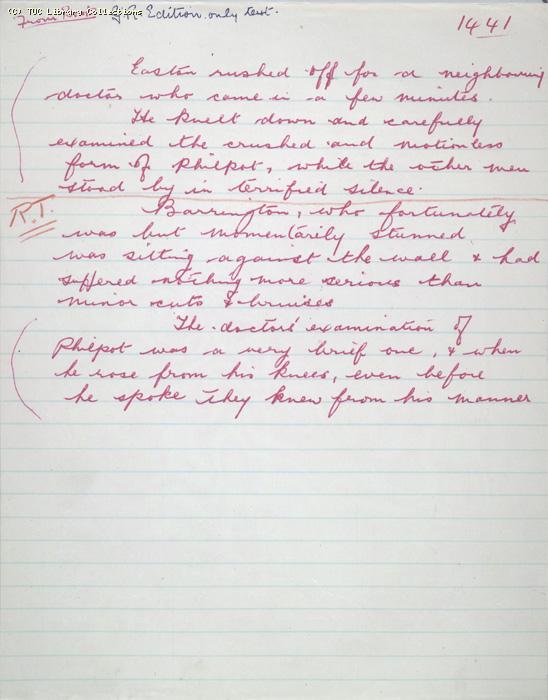 (C) TUC Library Collections
From G.R. Edition. only text.
1441
Easton rushed off for a neighbouring
doctor who came in a few minutes.
He knelt down and carefully
examined the crushed and motionless
form of Philpot, while the other men
stood by in terrified silence.
R.T.
Barrington, who fortunately
was but momentarily stunned
was sitting against the wall & had
suffered nothing more serious than
minor cuts & bruises
The doctors' examination of
Philpot was a very brief one, & when
he rose from his knees, even before
he spoke they knew from his manner